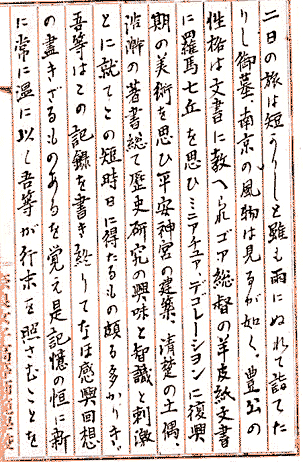 二日の旅は短かりしと雖も雨にぬれて詣でた
りし御墓、南京の風物は見るが如く、豊公の
性格は文書に教へられゴア総督の羊皮紙文書
に羅馬七丘を思ひミニアチュア、デコレーションに復興
期の美術を思ひ平安神宮の建築、清楚の土偶、
浩瀚の著書総て歴史研究の興味と智識と刺激
とに就てこの短時日に得たるもの頗る多かりき。
吾等はこの記録を書き終りてなほ感興回想
の盡きざるものあるを覚え是記憶の恒に新
に常に温に以し吾等が行末を照さむことを